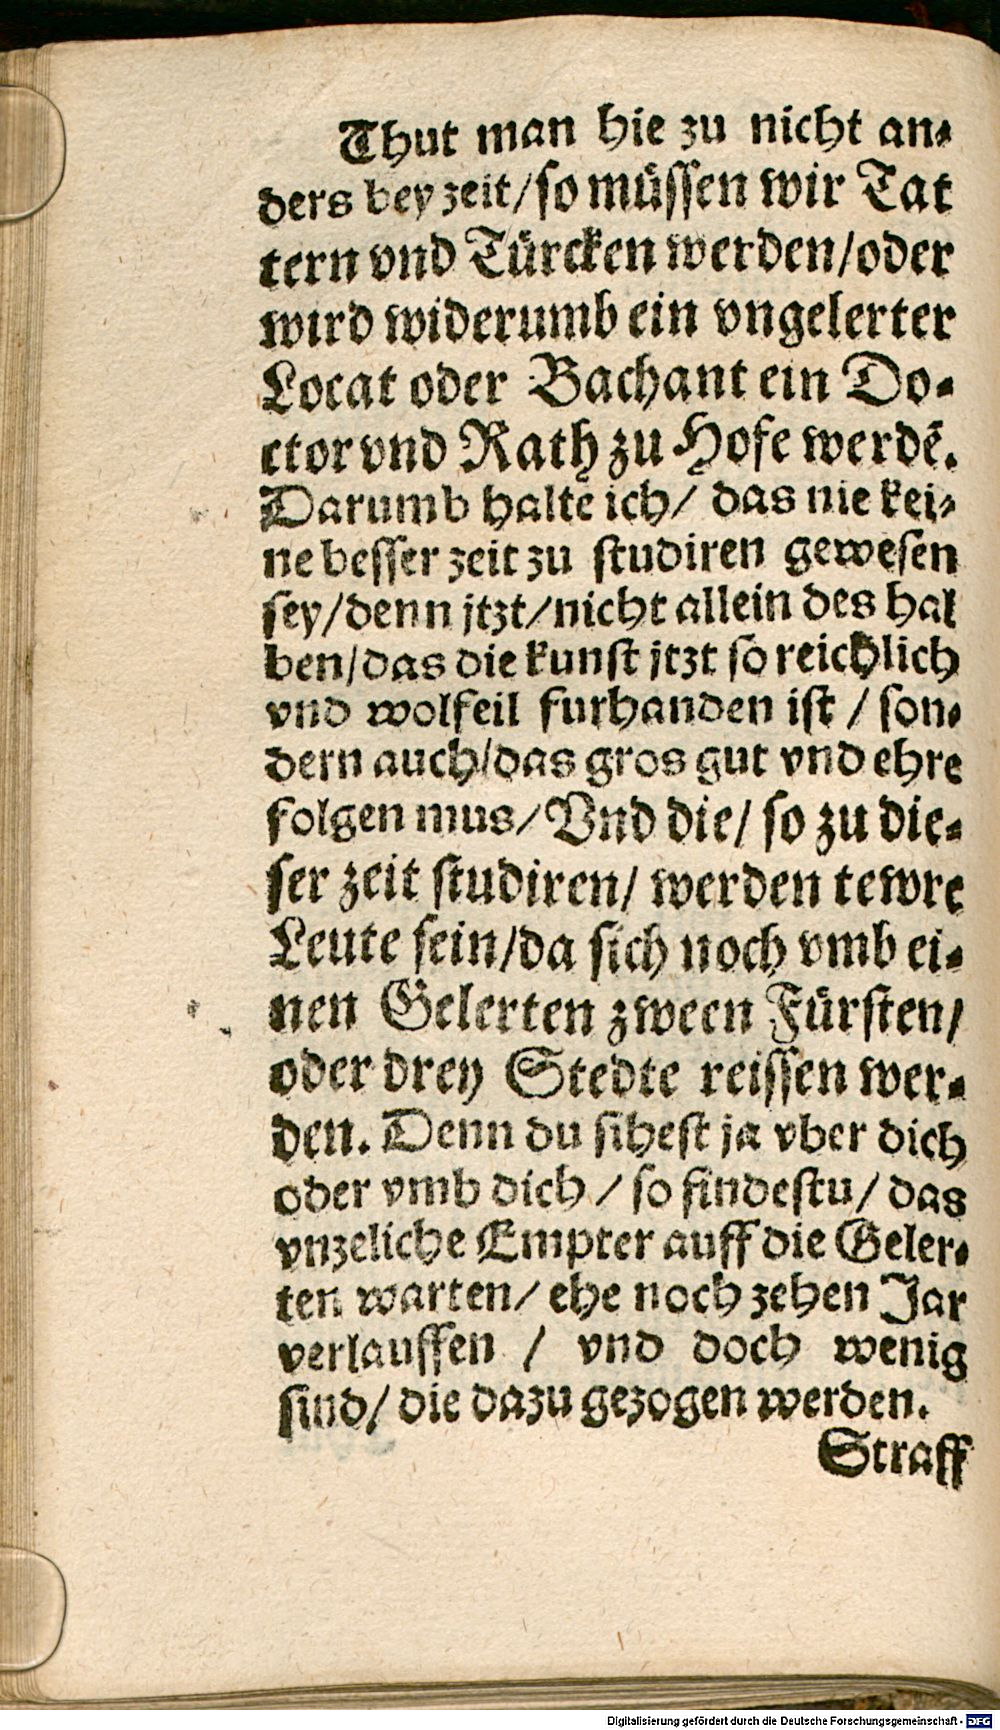 Thut man hie zu nicht an⸗
ders bey zeit/so müssen wir Tat
tern vnd Türcken werden/oder
wird widerumb ein vngelerter
Locat oder Bachant ein Do⸗
ctor vnd Rath zu Hofe werdẽ.
Darumb halte ich/ das nie kei⸗
ne besser zeit zu studiren gewesen
sey/denn jtzt/nicht allein des hal
ben/das die kunst jtzt so reichlich
vnd wolfeil furhanden ist / son⸗
dern auch/das gros gut vnd ehre
folgen mus/ Vnd die/ so zu die⸗
ser zeit studiren/ werden tewre
Leute sein/da sich noch vmb ei⸗
nen Gelerten zween Fürsten/
oder drey Stedte reissen wer⸗
den. Denn du sihest ja vber dich
oder vmb dich / so findestu/ das
vnzeliche Empter auff die Geler⸗
ten warten/ ehe noch zehen Jar
verlauffen / vnd doch wenig
sind/ die dazu gezogen werden.
Straff
Digitalisierung gefördert durch die Deutsche Forschungsgemeinschaft - DFG